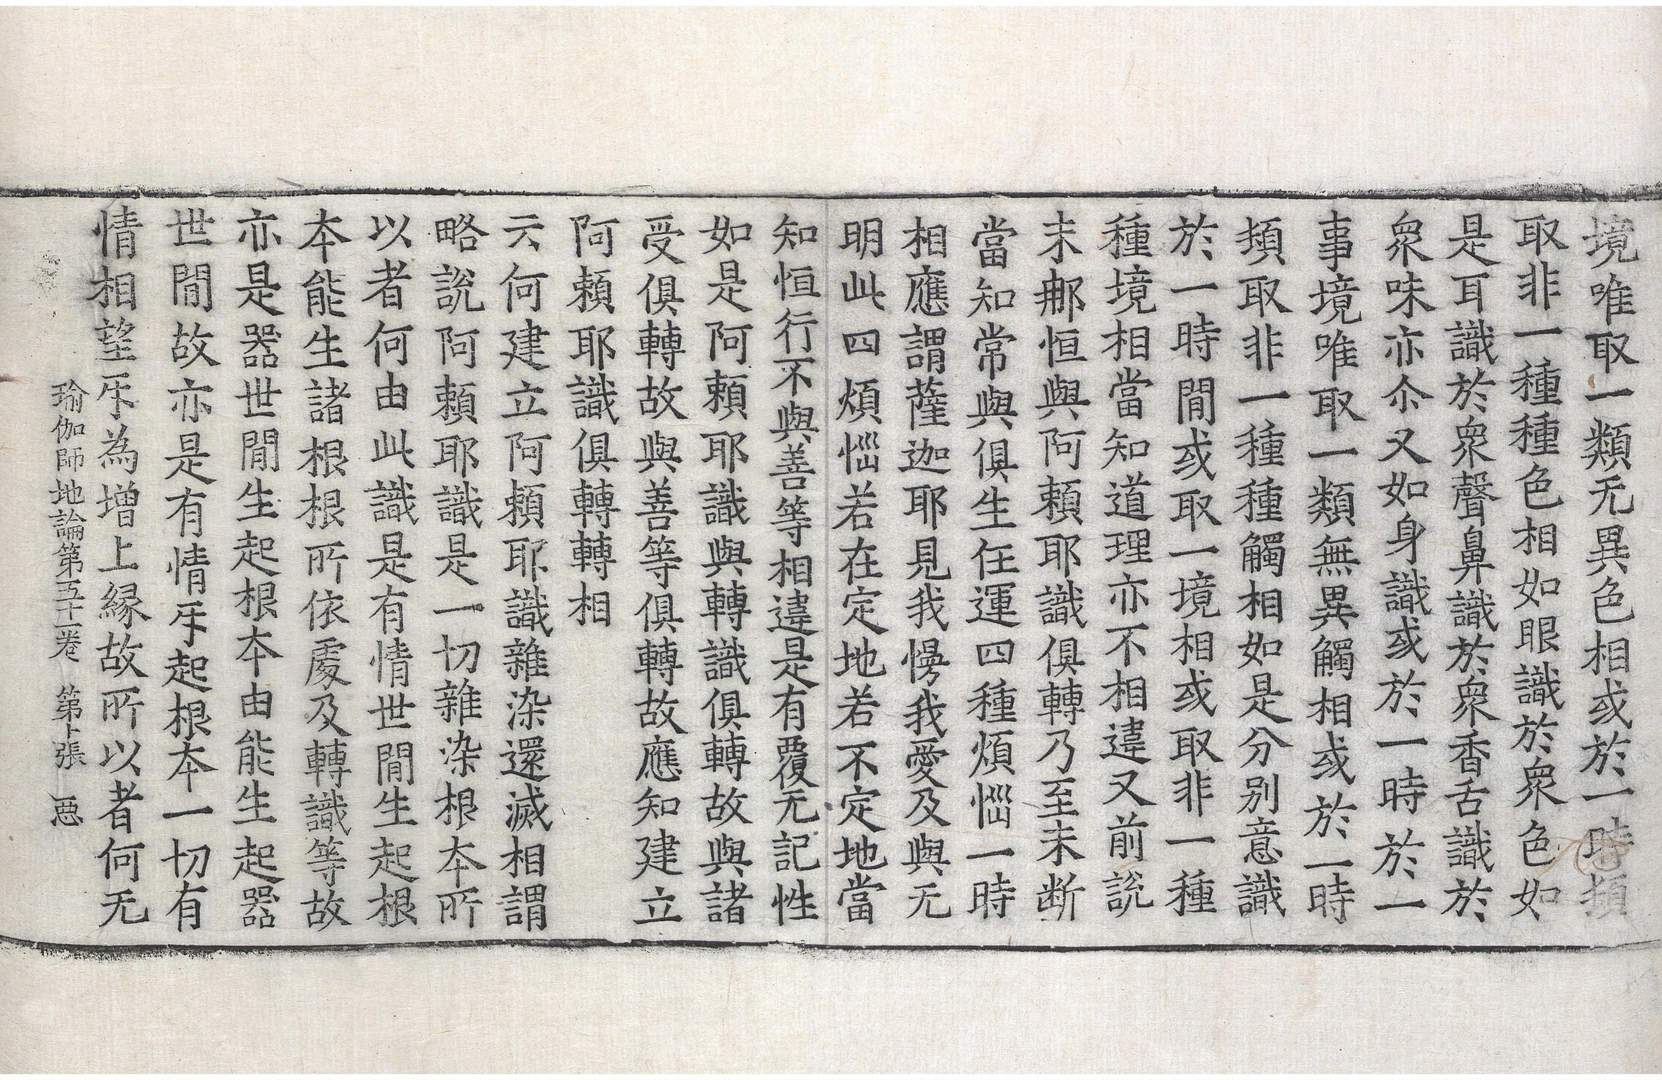 境唯取一類无異色相或於一時頻
取非一種種色相如眼識於衆色如
是耳識於衆聲鼻識於衆香舌識於
衆味亦尒又如身識或於一時於一
事境唯取一類無異觸相或於一時
頻取非一種種觸相如是分别意識
於一時閒或取一境相或取非一種
種境相當知道理亦不相違又前說
末那恒與阿頼耶識俱轉乃至未断
當知常與俱生任運四種煩惱一時
相應謂薩迦耶見我慢我愛及與无
明此四煩惱若在定地若不定地當
知恒行不與善等相違是有覆无記性
如是阿頼耶識與轉識俱轉故與諸
受俱轉故與善等俱轉故應知建立
阿頼耶識俱轉轉相
云何建立阿頼耶識雜染還滅相謂
略說阿頼耶識是一切雜染根本所
以者何由此識是有情世閒生起根
本能生諸根根所依處及轉識等故
亦是器世閒生起根本由能生起器
世閒故亦是有情㸦起根本一切有
情相望㸦為增上縁故所以者何无
瑜伽師地論第五十一卷 第七張 惡